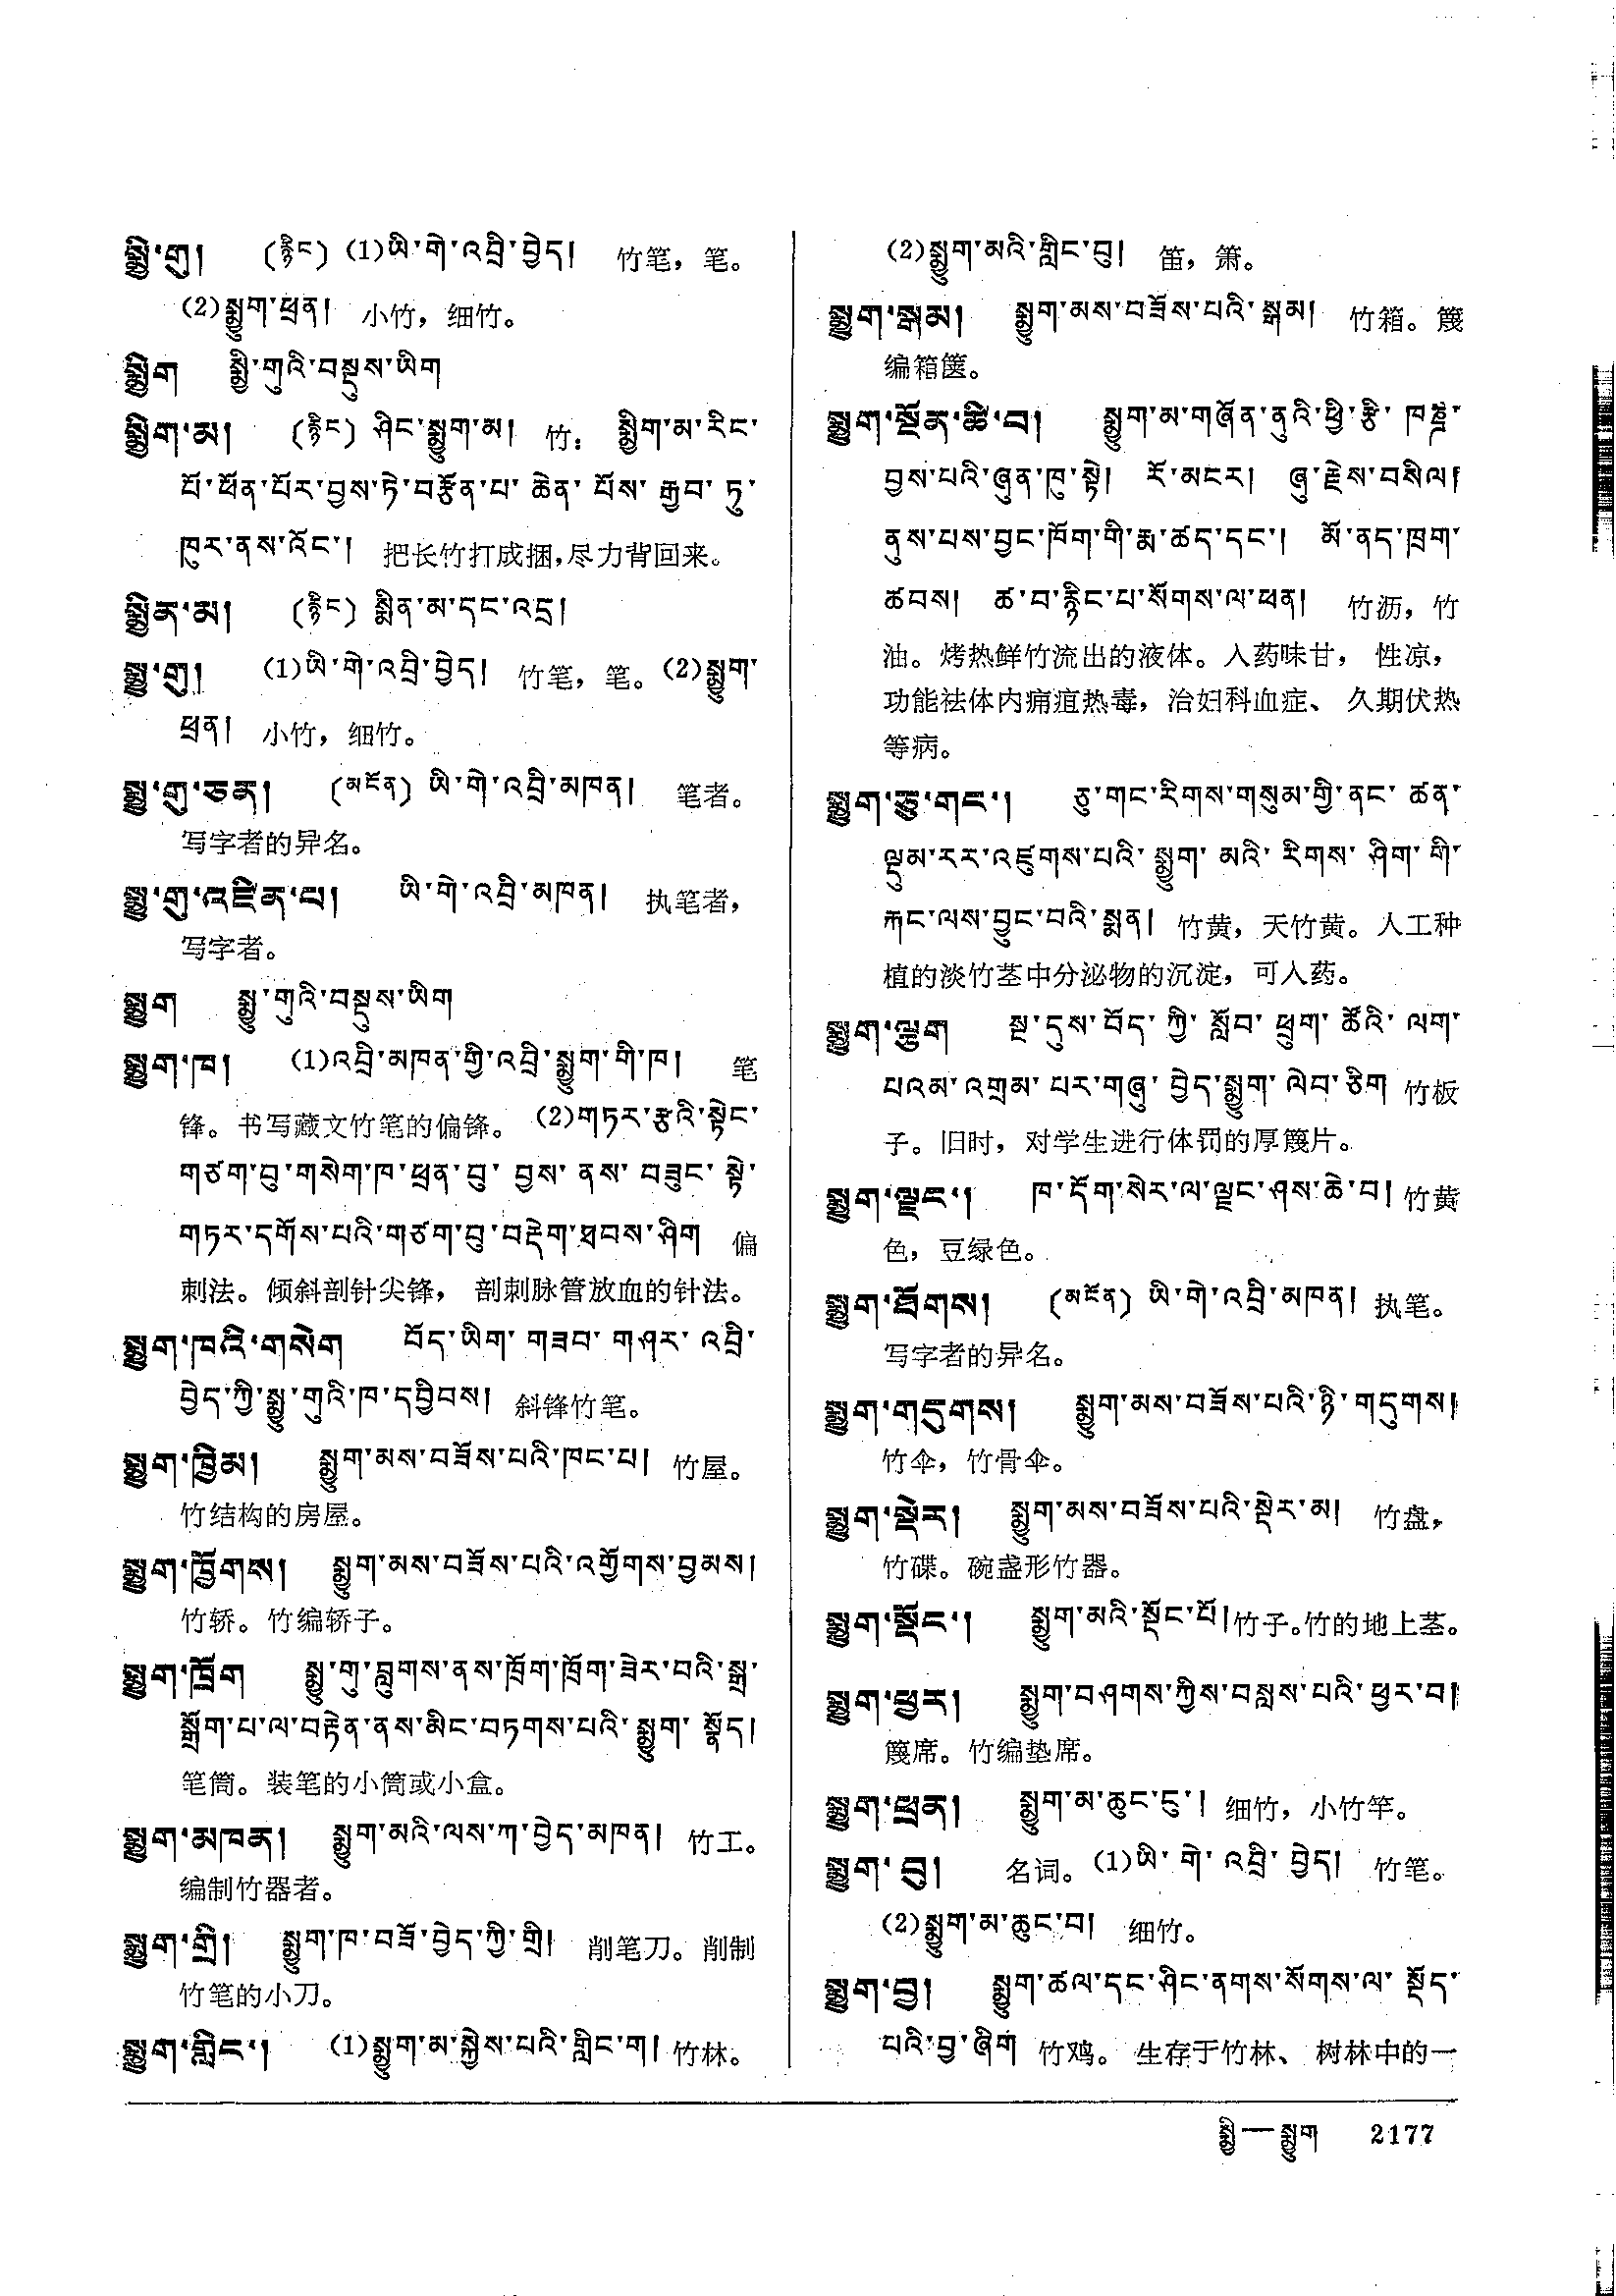 སྨྱི་གུ། (རྙིང) (1)ཡི་གེ་འབྲི་བྱེད། 竹笔，笔。
(2)སྨྱུག་ཕྲན། 小竹，细竹。
སྨྱིག སྨྱི་གུའི་བསྡུས་ཡིག
སྨྱིག་མ། (རྙིང) ཤིང་སྨྱུག་མ། 竹： སྨྱིག་མ་རིང་
པོ་ཕོན་པོར་བྱས་ཏེ་བརྩོན་པ་ ཆེན་ པོས་ རྒྱབ་ ཏུ་
ཁུར་ནས་འོང་། 把长竹打成捆，尽力背回来。
སྨྱིན་མ། (རྙིང) སྨིན་མ་དང་འདྲ།
སྨྱུ་གུ། (1)ཡི་གེ་འབྲི་བྱེད། 竹笔，笔。(2)སྨྱུག་
ཕྲན། 小竹，细竹。
སྨྱུ་གུ་ཅན། (མངོན) ཡི་གེ་འབྲི་མཁན། 笔者。
写字者的异名。
སྨྱུ་གུ་འཛིན་པ། ཡི་གེ་འབྲི་མཁན། 执笔者，
写字者。
སྨྱུག སྨྱུ་གུའི་བསྡུས་ཡིག
སྨྱུག་ཁ། (1)འབྲི་མཁན་གྱི་འབྲི་སྨྱུག་གི་ཁ། 笔
锋。书写藏文竹笔的偏锋。(2)གཏར་རྩའི་སྟེང་
གཙག་བུ་གསེག་ཁ་ཕྲན་བུ་ བྱས་ ནས་ བཟུང་ སྟེ་
གཏར་དགོས་པའི་གཙག་བུ་བརྡེག་ཐབས་ཤིག 偏
刺法。倾斜剖针尖锋， 剖刺脉管放血的针法。
སྨྱུག་ཁའི་གསེག བོད་ཡིག་ གཟབ་ གཤར་ འབྲི་
བྱེད་ཀྱི་སྨྱུ་གུའི་ཁ་དབྱིབས། 斜锋竹笔。
སྨྱུག་ཁྱིམ། སྨྱུག་མས་བཟོས་པའི་ཁང་པ། 竹屋。
竹结构的房屋。
སྨྱུག་ཁྱོགས། སྨྱུག་མས་བཟོས་པའི་འགྱོགས་བྱམས།
竹轿。竹编轿子。
སྨྱུག་ཁྲོག སྨྱུ་གུ་བླུགས་ནས་ཁྲོག་ཁྲོག་ཟེར་བའི་སྒྲ་
སྒྲོག་པ་ལ་བརྟེན་ནས་མིང་བཏགས་པའི་སྨྱུག་ སྣོད།
笔筒。装笔的小筒或小盒。
སྨྱུག་མཁན། སྨྱུག་མའི་ལས་ཀ་བྱེད་མཁན། 竹工。
编制竹器者。
སྨྱུག་གྲི། སྨྱུག་ཁ་བཟོ་བྱེད་ཀྱི་གྲི། 削笔刀。削制
竹笔的小刀。
སྨྱུག་གླིང་། (1)སྨྱུག་མ་སྐྱེས་པའི་གླིང་ག། 竹林。
(2)སྨྱུག་མའི་གླིང་བུ། 笛，箫。
སྨྱུག་སྒམ། སྨྱུག་མས་བཟོས་པའི་སྒམ། 竹箱。篾
编箱箧。
སྨྱུག་སྔོན་ཚི་བ། སྨྱུག་མ་གཞོན་ནུའི་ཕྱི་རྩི་ ཁཎྜ་
བྱས་པའི་ཞུན་ཁུ་སྟེ། རོ་མངར། ཞུ་རྗེས་བསིལ།
ནུས་པས་བྱང་ཁོག་གི་རྨ་ཚད་དང་། མོ་ནད་ཁྲག་
ཚབས། ཚ་བ་རྙིང་པ་སོགས་ལ་ཕན། 竹沥，竹
油。烤热鲜竹流出的液体。入药味甘， 性凉，
功能祛体内痈疽热毒，治妇科血症、久期伏热
等病。
སྨྱུག་ཅུ་གང་། ཅུ་གང་རིགས་གསུམ་གྱི་ནང་ ཚན་
ལྡུམ་རར་འཛུགས་པའི་ སྨྱུག་ མའི་ རིགས་ ཤིག་ གི་
རྐང་ལས་བྱུང་བའི་སྨན། 竹黄，天竹黄。人工种
植的淡竹茎中分泌物的沉淀，可入药。
སྨྱུག་ལྕུག སྔ་དུས་བོད་ ཀྱི་ སློབ་ ཕྲུག་ ཚོའི་ ལག་
པའམ་འགྲམ་ པར་གཞུ་ བྱེད་སྨྱུག་ ལེབ་ཅིག 竹板
子。旧时，对学生进行体罚的厚篾片。
སྨྱུག་ལྗང་། ཁ་དོག་སེར་ལ་ལྗང་ཤས་ཆེ་བ། 竹黄
色，豆绿色。
སྨྱུག་ཐོགས། (མངོན) ཡི་གེ་འབྲི་མཁན། 执笔。
写字者的异名。
སྨྱུག་གདུགས། སྨྱུག་མས་བཟོས་པའི་ཉི་གདུགས།
竹伞，竹骨伞。
སྨྱུག་སྡེར། སྨྱུག་མས་བཟོས་པའི་སྡེར་མ། 竹盘，
竹碟。碗盏形竹器。
སྨྱུག་སྡོང་། སྨྱུག་མའི་སྡོང་པོ། 竹子。竹的地上茎。
སྨྱུག་ཕྱར། སྨྱུག་བཤགས་ཀྱིས་བསླས་པའི་ཕྱར་བ།
篾席。竹编垫席。
སྨྱུག་ཕྲན། སྨྱུག་མ་ཆུང་ངུ་། 细竹，小竹竿。
སྨྱུག་བུ། 名词。(1)ཡི་ གེ་ འབྲི་ བྱེད། 竹笔。
(2)སྨྱུག་མ་ཆུང་བ། 细竹。
སྨྱུག་བྱ། སྨྱུག་ཚལ་དང་ཤིང་ནགས་སོགས་ལ་ སྡོད་
པའི་བྱ་ཞིག 竹鸡。 生存于竹林、 树林中的一
སྨྱི—སྨྱུག 2177